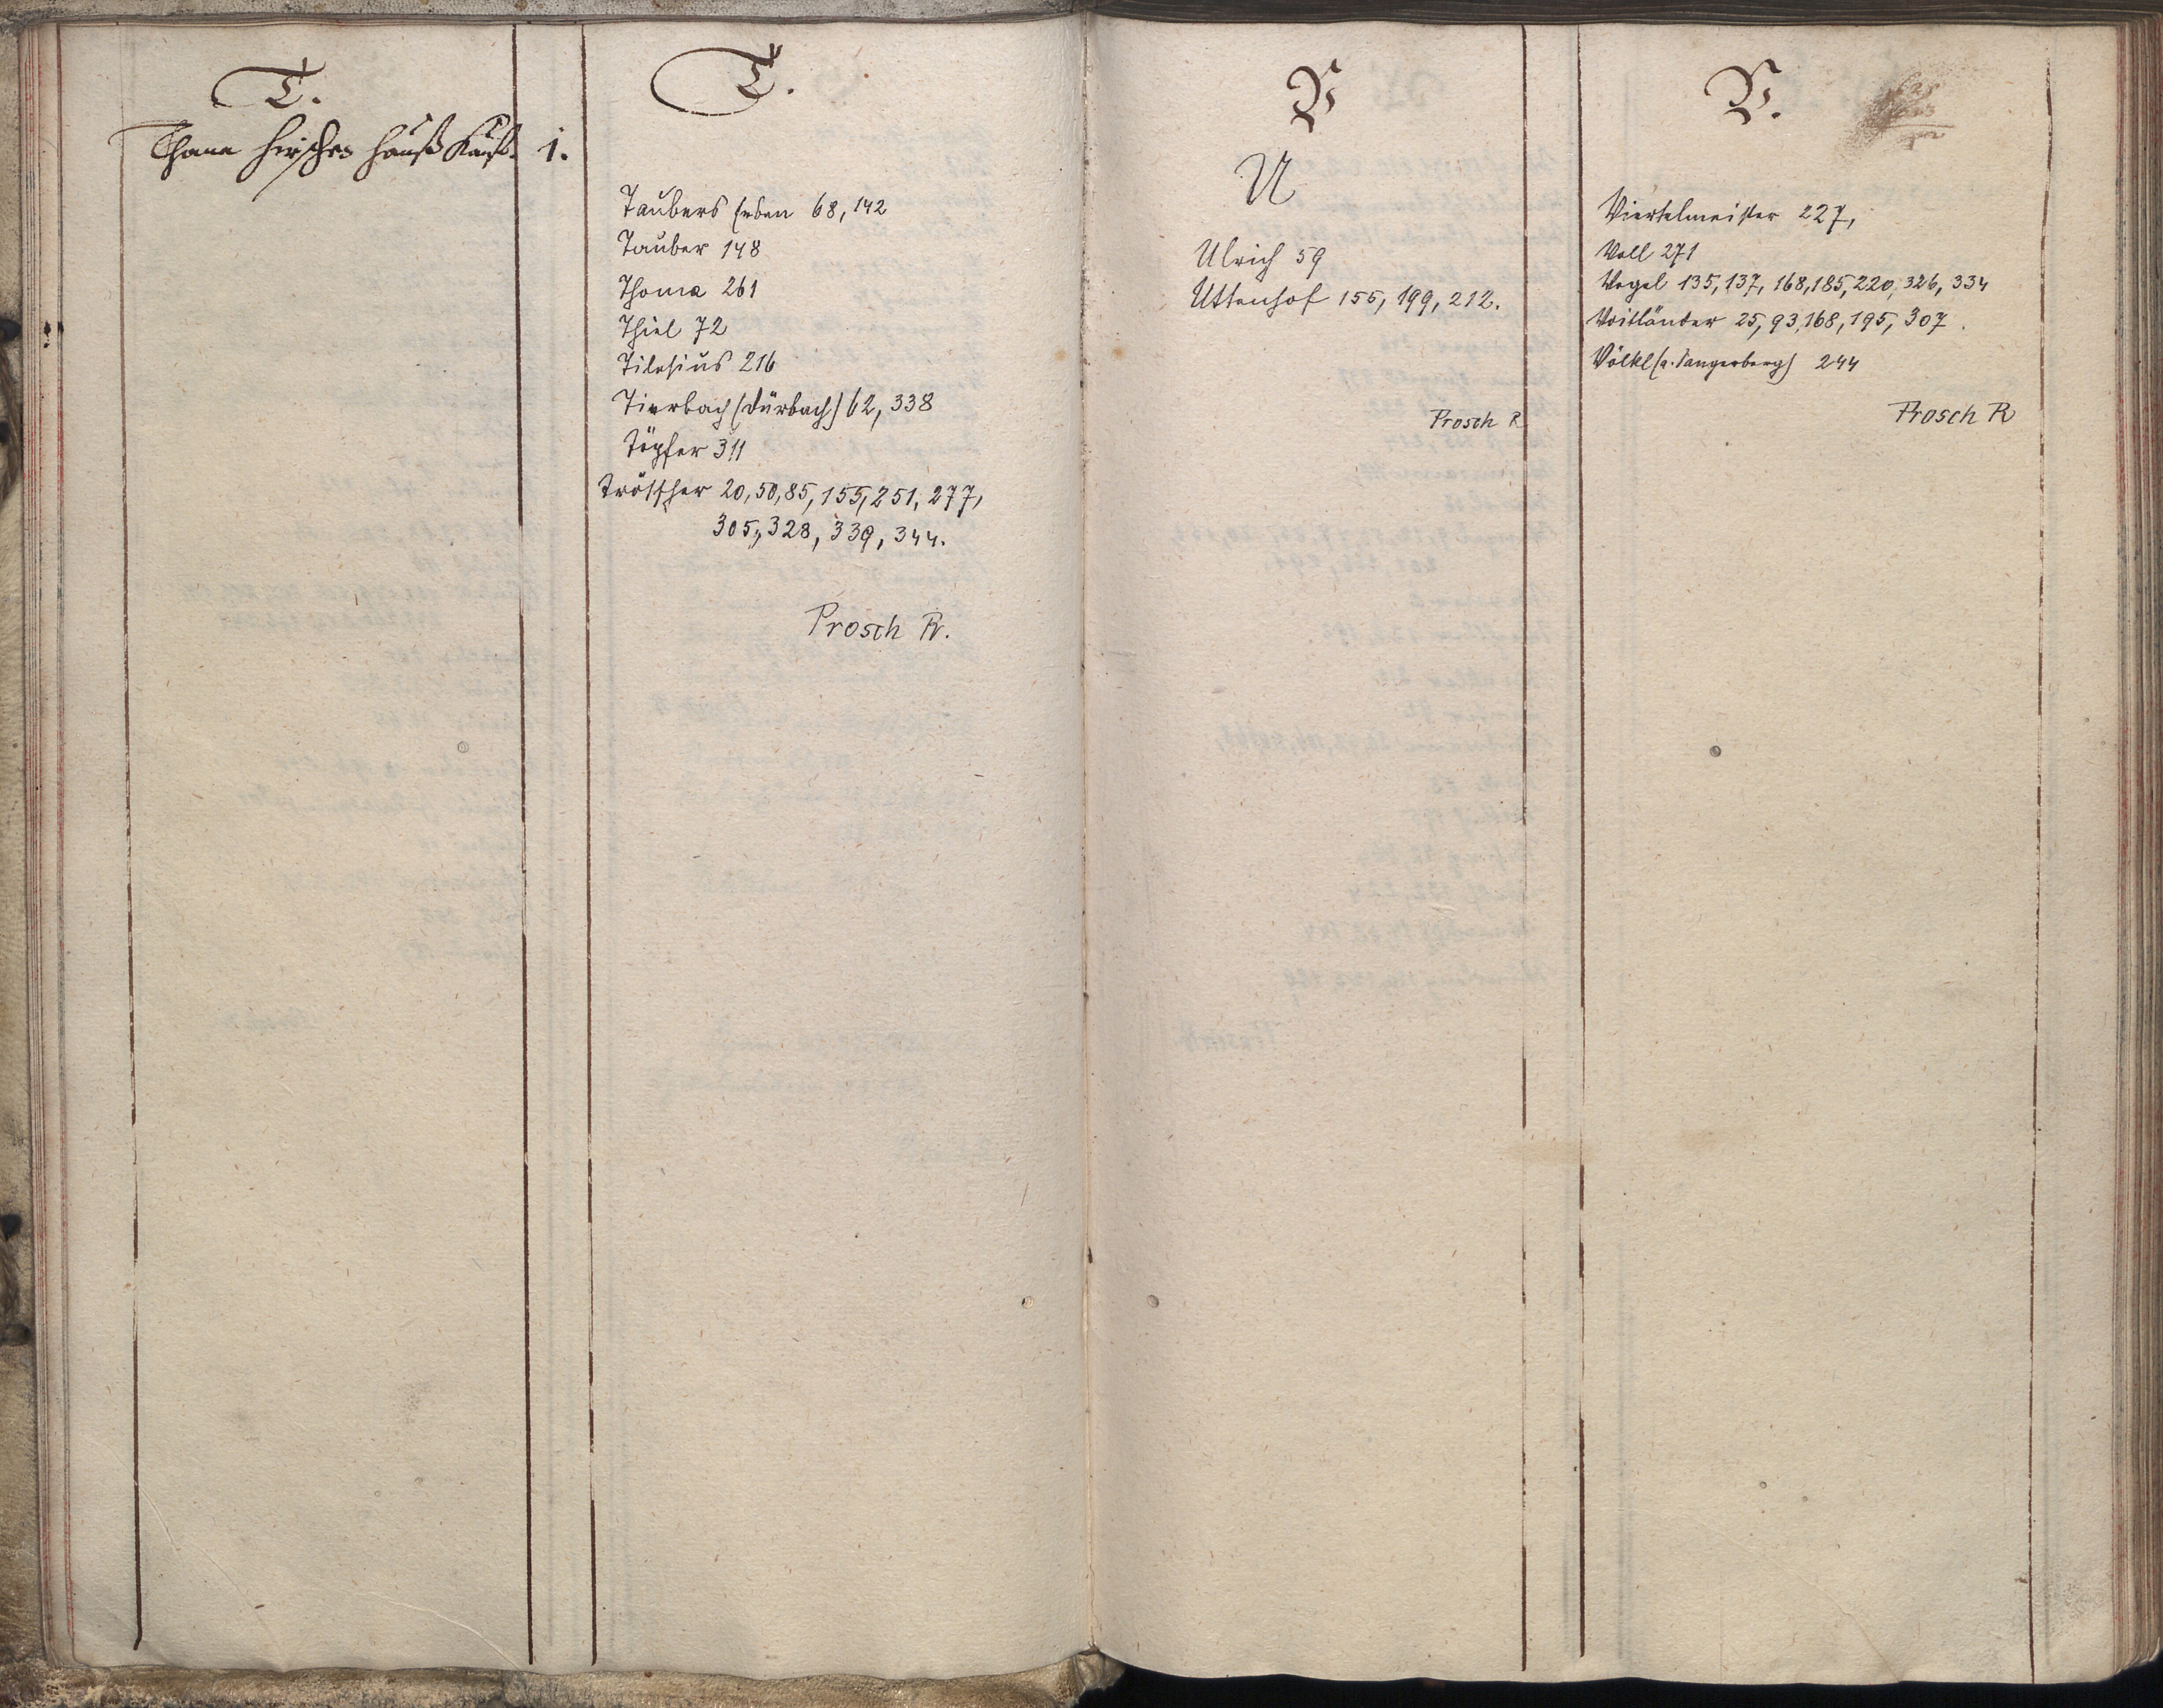 T.
Thama Hirschen Hauß Kauf. 1.
T.
Taubers Erben 68, 142
Tauber 148
Thoma 261
Thiel 72
Tilesius 216
Tierbach (Dürbach) 62, 338
Töpfer 311
Tröscher 20, 50, 85, 155, 251, 277,
305, 328, 339, 344.
Prosch R.
V
U
Ulrich 59
Uttenhof 155, 199, 212.
Prosch R
V.
Viertelmeister 227,
Voll 271
Vogel 135, 137, 168, 185, 220, 326, 334
Voitländer 25, 93, 168, 195, 307.
Völkl (a. Sangerberg) 244
Prosch R